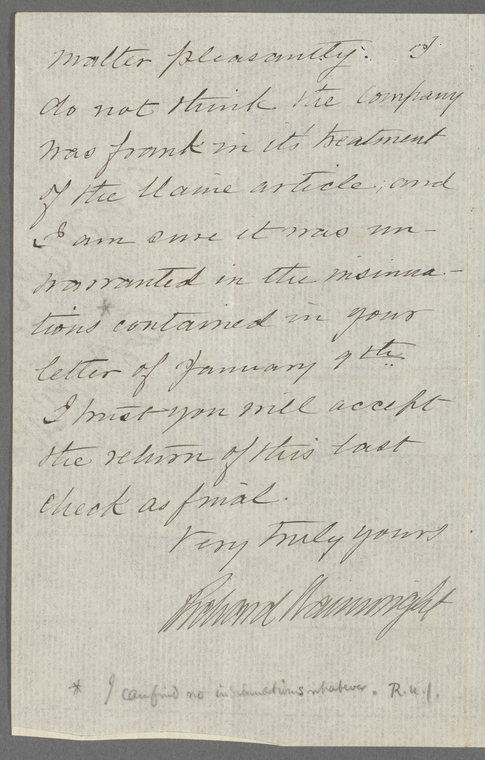 matter pleasantly. I
do not think the Company
was frank in its treatment
of the Maine article, and
I am sure it was un-
warranted in the insinua-
tions contained in your
letter of January 9th.
I trust you will accept
the return of this last
check as final.
Very truly yours
Richard Wainwright
* I can find no insinuations whatever. R.U.J.